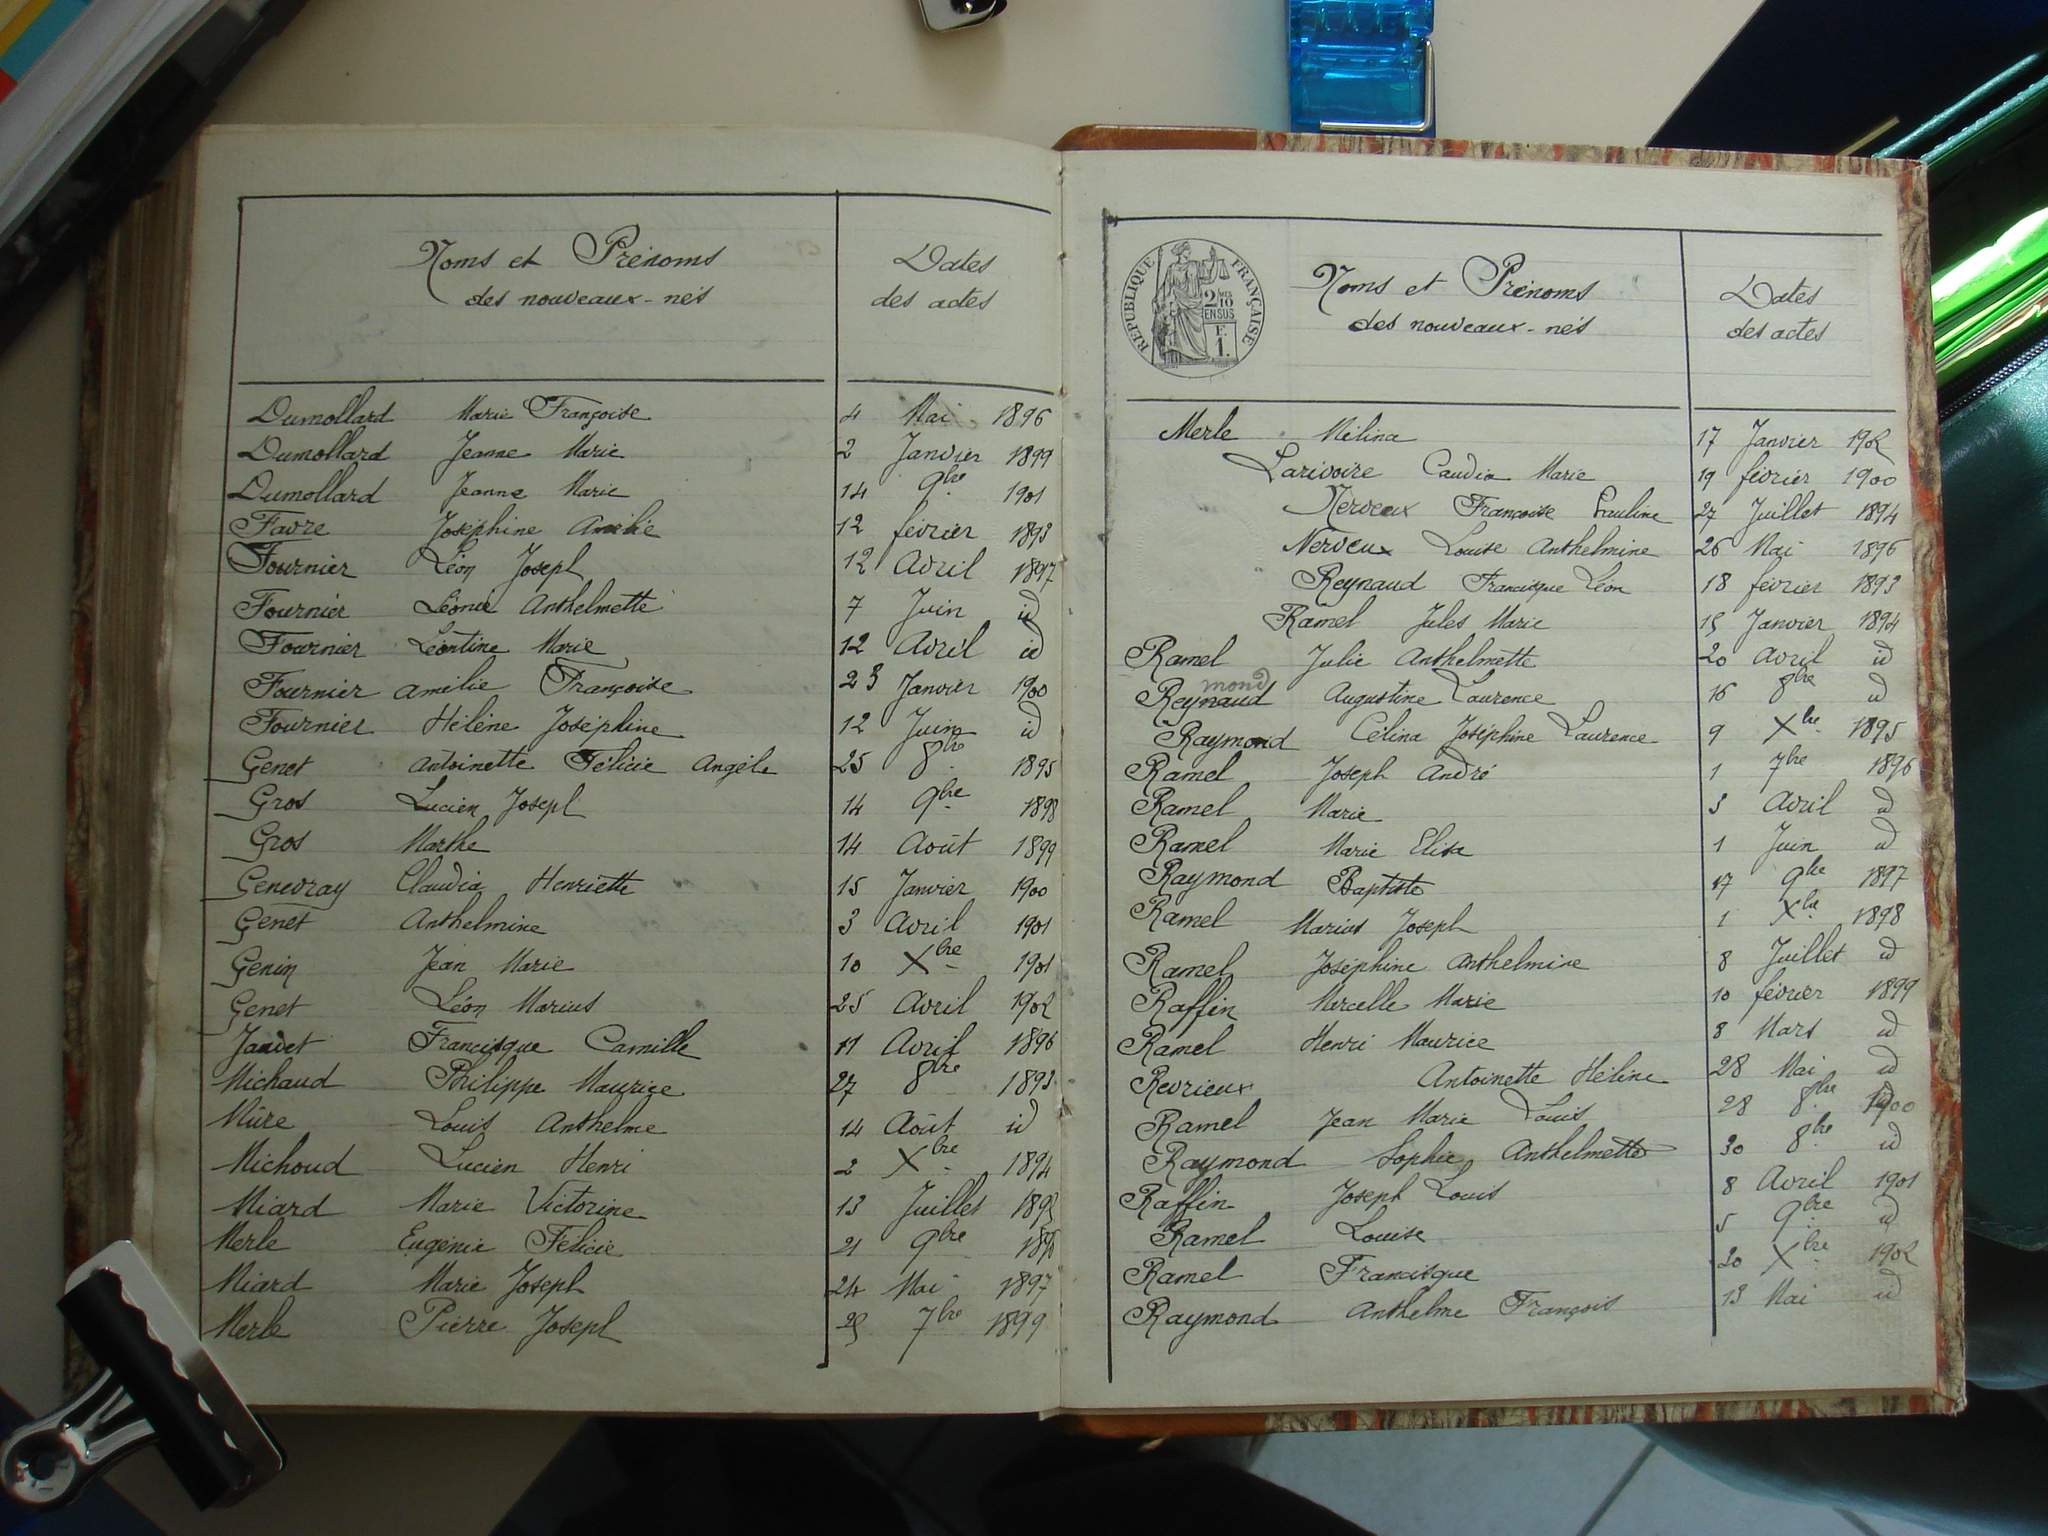 Noms et Prénoms
des nouveaux-nés
Dates
des actes
Dumollard Marie Françoise 4 Mai 1896
Dumollard Jeanne Marie 2 Janvier 1899
Dumollard Jeanne Marie 14 9bre 1901
Favre Joséphine Amélie 12 février 1893
Fournier Léon Joseph 12 Avril 1897
Fournier Léonie Anthelmette 7 Juin id
Fournier Léontine Marie 12 Avril id
Fournier Amélie Françoise 23 Janvier 1900
Fournier Hélène Joséphine 12 Juin id
Genet Antoinette Félicie Angèle 25 8bre 1895
Gros Lucien Joseph 14 9bre 1898
Gros Marthe 14 Août 1899
Genevray Claudia Henriette 15 Janvier 1900
Genet Anthelmine 3 Avril 1901
Genin Jean Marie 10 Xbre 1901
Genet Léon Marius 25 Avril 1902
Jandet Francisque Camille 11 Avril 1896
Michaud Philippe Maurice 27 8bre 1893
Mûre Louis Anthelme 14 Août id
Michoud Lucien Henri 2 Xbre 1894
Miard Marie Victorine 13 Juillet
Merle Eugénie Félicie 21 9bre
Miard Marie Joseph 24 Mai 1897
Merle Pierre Joseph 7bre 1899
RÉPUBLIQUE FRANÇAISE
2/10
EN SUS
F.
1.
Noms et Prénoms
des nouveaux-nés
Dates
des actes
Merle Mélina 17 Janvier 1902
Larivoire Caudia Marie 19 février 1900
Nerveux Françoise Pauline 27 Juillet 1894
Nerveux Louise Anthelmine 26 Mai 1896
Reynaud Francisque Léon 18 février 1893
Ramel Jules Marie 15 Janvier 1894
Ramel Julie Anthelmette 20 Avril id
mond
Reynaud Augustine Laurence 16 8bre id
Raymond Célina Joséphine Laurence 9 Xbre 1895
Ramel Joseph André 1 7bre 1896
Ramel Marie 3 Avril id
Ramel Marie Elisa 1 Juin id
Raymond Baptiste 17 9bre 1897
Ramel Marius Joseph 1 Xbre 1898
Ramel Joséphine Anthelmine 8 Juillet id
Raffin Marcelle Marie 10 février 1899
Ramel Henri Maurice 8 Mars id
Revrieux Antoinette Hélène 28 Mai id
Ramel Jean Marie Louis 28 8bre 1900
Raymond Sophie Anthelmette 30 8bre id
Raffin Joseph Louis 8 Avril 1901
Ramel Louise 5 9bre id
Ramel Francisque 20 Xbre 1902
Raymond Anthelme François 13 Mai id